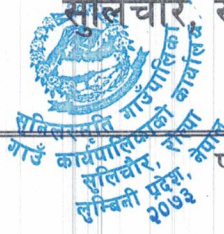 सुलिचौर,
सुनिलस्मृति गाउँपालिका
गाउँ कार्यपालिकाको कार्यालय
सुलिचौर, रोल्पा
लुम्बिनी प्रदेश, नेपाल
२०७३